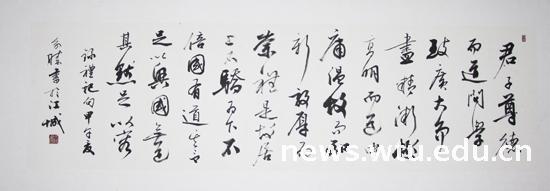 君子尊德
而道問學
致廣大而
盡精微極
高明而道中
庸温故而知
新敦厚以
崇禮是故居
上不驕為下不
倍國有道其言
足以興國無道
其默足以容
録禮記句甲午夏
書於江城
news.wtu.edu.cn